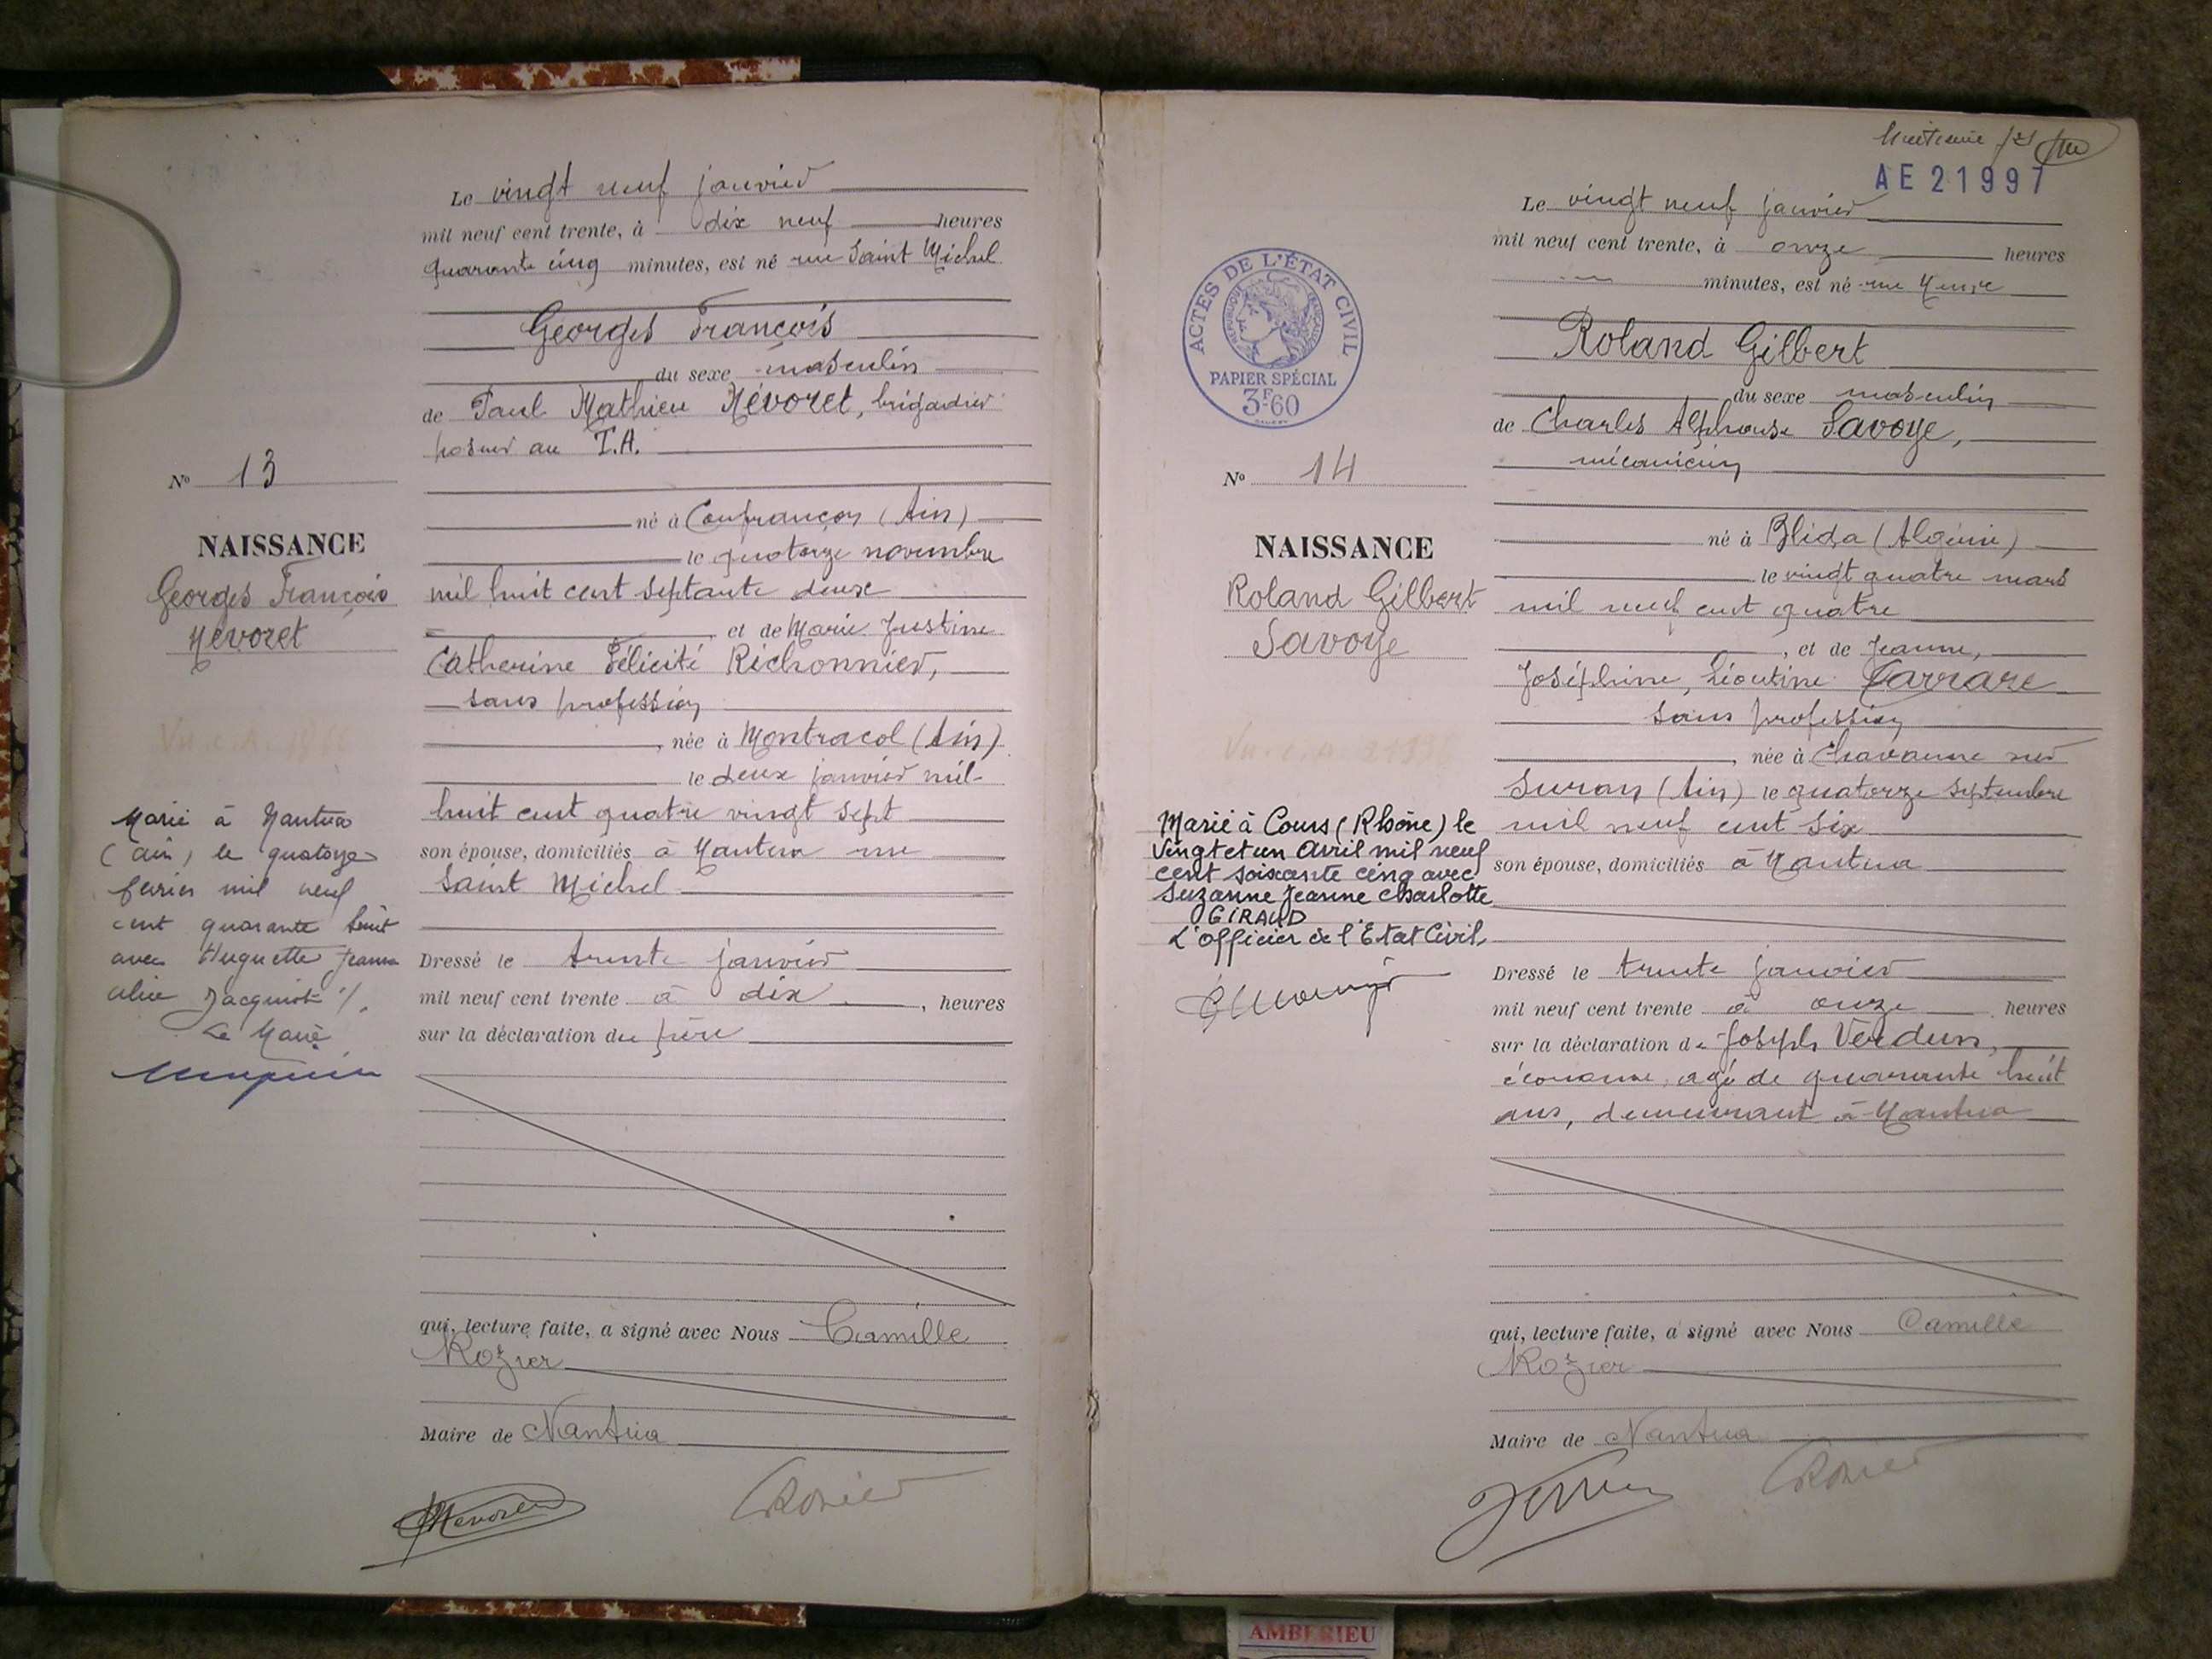 Le vingt neuf janvier
mil neuf cent trente, à dix neuf heures
quarante cinq minutes, est né rue Saint Michel
Georges François
du sexe masculin
de Paul Mathieu Névoret, brigadier
poseur au T.A.
né à Confrançon (Ain)
le quatorze novembre
mil huit cent septante deux
et de Marie Justine
Catherine Félicité Richonnier,
sans profession
, née à Montracol (Ain)
le deux janvier mil
huit cent quatre vingt sept
son épouse, domiciliés à Nantua rue
Saint Michel
Dressé le trente janvier
mil neuf cent trente à dix , heures
sur la déclaration du père
qui, lecture faite, a signé avec Nous Camille
Rozier
Maire de Nantua
Nevoret
CRozier
No 13
NAISSANCE
Georges François
Névoret
Marié à Nantua
(Ain) le quatorze
février mil neuf
cent quarante huit
avec Huguette Jeanne
Alice Jacquiot ./.
Le Maire
Huitième
AE 21997
Le vingt neuf janvier
mil neuf cent trente, à onze heures
minutes, est né rue
Roland Gilbert
du sexe masculin
de Charles Alphonse Savoye,
mécanicien
né à Blida (Algérie)
le vingt quatre mars
mil neuf cent quatre
, et de Jeanne,
Joséphine, Léontine Carrare
sans profession
, née à Chavanne sur
Suran (Ain) le quatorze septembre
mil neuf cent six
son épouse, domiciliés à Nantua
Dressé le trente janvier
mil neuf cent trente à onze heures
sur la déclaration de Joseph Verdun,
économe, agé de quarante huit
ans, demeurant à Nantua
qui, lecture faite, a signé avec Nous Camille
Rozier
Maire de Nantua
CRozier
ACTES DE L'ÉTAT CIVIL
RÉPUBLIQUE FRANÇAISE
PAPIER SPÉCIAL
3F60
No 14
NAISSANCE
Roland Gilbert
Savoye
Marié à Cours (Rhône) le
vingt et un Avril mil neuf
cent soixante cinq avec
Suzanne Jeanne Charlotte
GIRAUD
L'Officier de l'Etat Civil,
AMBERIEU